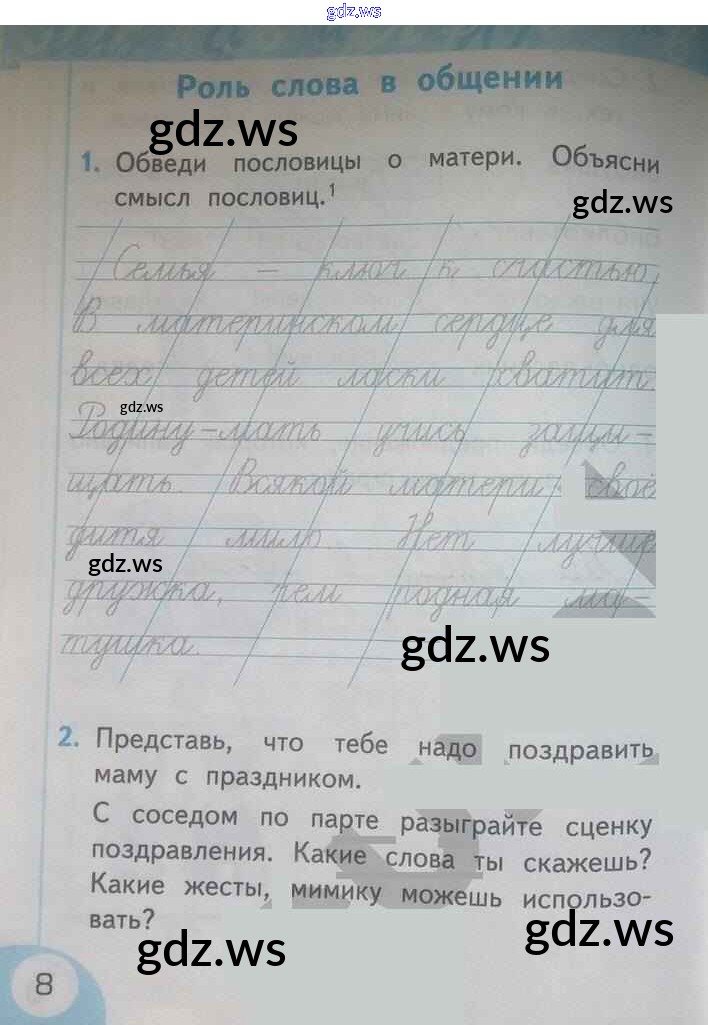 gdz.ws
Роль слова в общении
gdz.ws
1. Обведи пословицы о матери. Объясни
смысл пословиц.¹
gdz.ws
Семья – ключ к счастью.
В материнском сердце для
всех детей ласки хватит.
gdz.ws
Родину-мать учись защи-
щать. Всякой матери своё
дитя мило. Нет лучше
gdz.ws
дружка, чем родная ма-
тушка.
gdz.ws
2. Представь, что тебе надо поздравить
маму с праздником.
С соседом по парте разыграйте сценку
поздравления. Какие слова ты скажешь?
Какие жесты, мимику можешь использо-
вать?
gdz.ws
gdz.ws
8